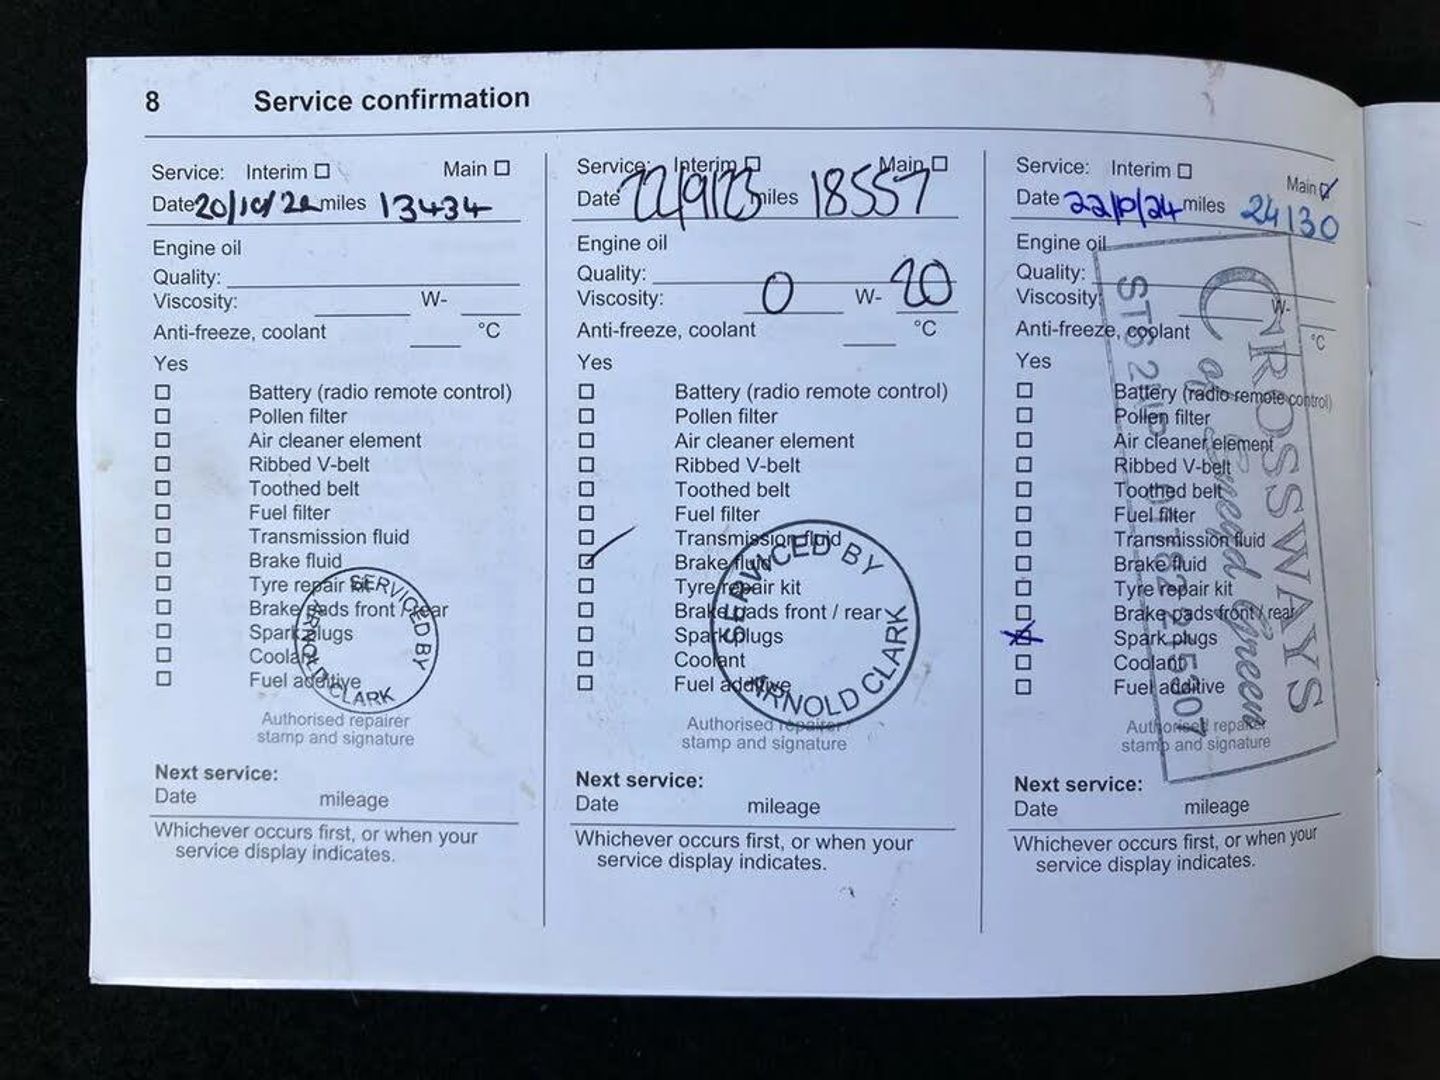 8 Service confirmation
Service: Interim Main
Date 20/10/22 miles 13434
Engine oil
Quality:
Viscosity: W-
Anti-freeze, coolant °C
Yes
Battery (radio remote control)
Pollen filter
Air cleaner element
Ribbed V-belt
Toothed belt
Fuel filter
Transmission fluid
Brake fluid
Tyre repair kit
Brake pads front / rear
Spark plugs
Coolant
Fuel additive
SERVICED BY
ARNOLD CLARK
Authorised repairer
stamp and signature
Next service:
Date mileage
Whichever occurs first, or when your
service display indicates.
Service: Interim Main
Date 22/9/23 miles 18557
Engine oil
Quality:
Viscosity: 0 W- 20
Anti-freeze, coolant °C
Yes
Battery (radio remote control)
Pollen filter
Air cleaner element
Ribbed V-belt
Toothed belt
Fuel filter
Transmission fluid
Brake fluid
Tyre repair kit
Brake pads front / rear
Spark plugs
Coolant
Fuel additive
SERVICED BY
ARNOLD CLARK
Authorised repairer
stamp and signature
Next service:
Date mileage
Whichever occurs first, or when your
service display indicates.
Service: Interim Main
Date 22/10/24 miles 24130
Engine oil
Quality:
Viscosity: W-
Anti-freeze, coolant °C
Yes
Battery (radio remote control)
Pollen filter
Air cleaner element
Ribbed V-belt
Toothed belt
Fuel filter
Transmission fluid
Brake fluid
Tyre repair kit
Brake pads front / rear
Spark plugs
Coolant
Fuel additive
CROSSWAYS
Green
Authorised repairer
stamp and signature
Next service:
Date mileage
Whichever occurs first, or when your
service display indicates.